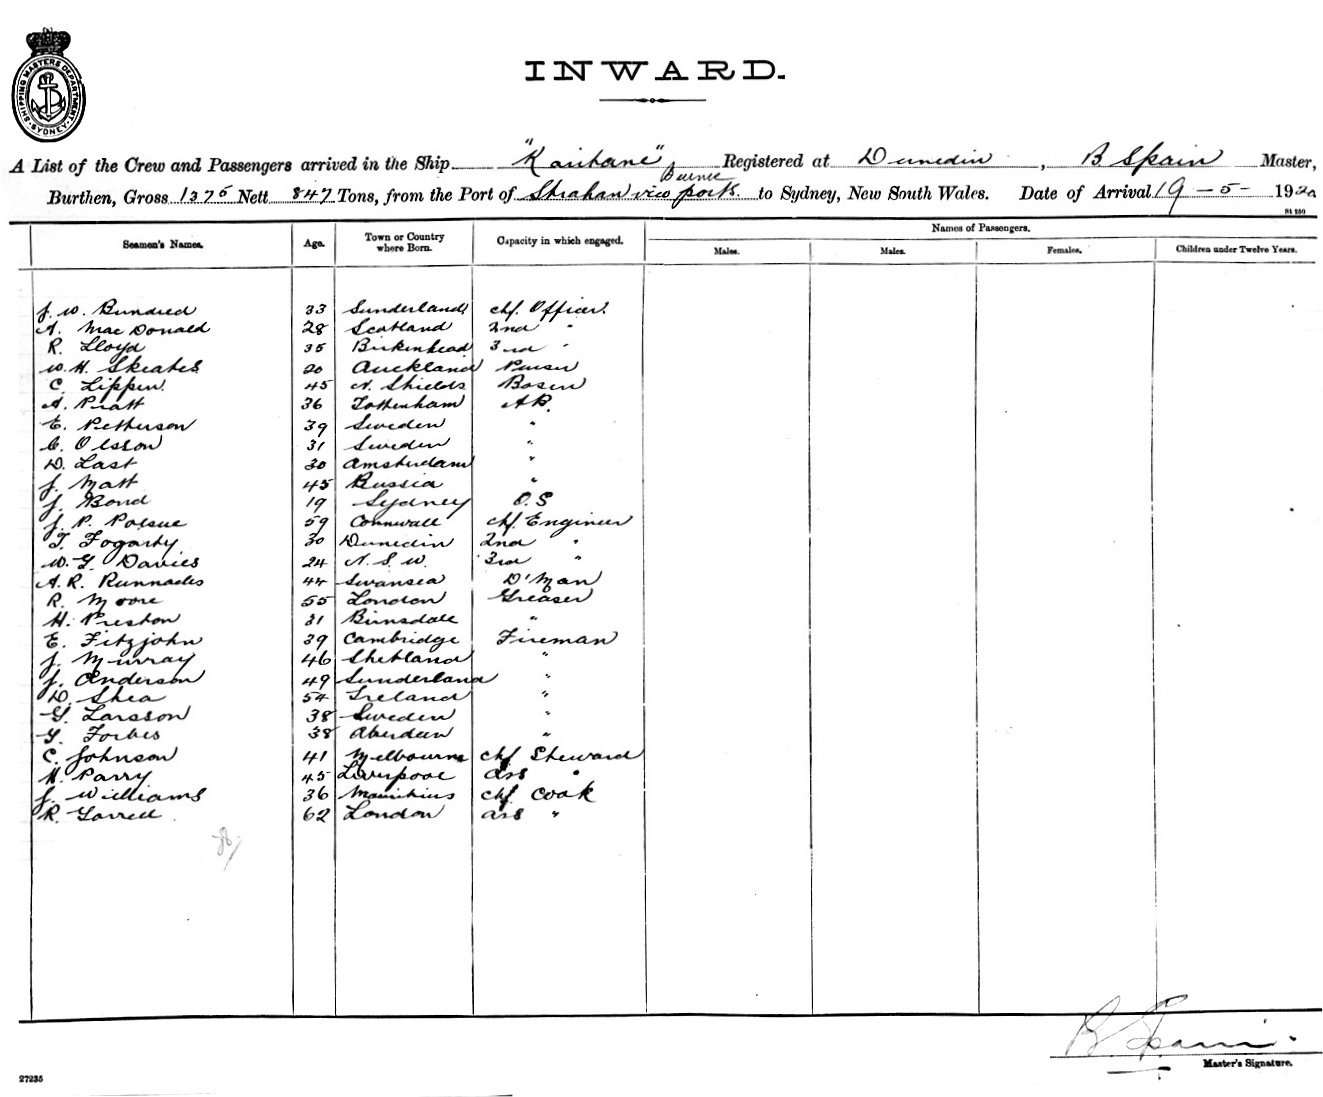 SHIPPING MASTERS DEPARTMENT. SYDNEY.
INWARD.
A List of the Crew and Passengers arrived in the Ship "Karitane", Registered at Dunedin, B Spain Master,
Burnie
Burthen, Gross 1376 Nett 847 Tons, from the Port of Strahan vico port to Sydney, New South Wales. Date of Arrival 19-5-1920
St 250
Seamen's Names. Age. Town or Country where Born. Capacity in which engaged. Names of Passengers.
Males. Males. Females. Children under Twelve Years.
J. W. Bundred 33 Sunderland chf. Officer
A. MacDonald 28 Scotland 2nd "
R. Lloyd 35 Birkenhead 3rd "
W. H. Skeates 20 Auckland Purser
C. Lippen 45 N. Shields Bosen
A. Pratt 36 Tottenham AB.
E. Petterson 39 Sweden "
C. Olsson 31 Sweden "
D. Last 30 Amsterdam "
J. Matt 45 Russia "
J. Bond 19 Sydney O.S
J. P. Polsue 59 Cornwall chf Engineer
T. Fogarty 30 Dunedin 2nd "
W. G. Davies 24 N. S. W. 3rd "
A. R. Runnacles 44 Swansea D'Man
R. Moore 55 London Greaser
H. Preston 31 Birnsdale "
E. Fitzjohn 39 Cambridge Fireman
J. Murray 46 Shetland "
J. Anderson 49 Sunderland "
D. Shea 54 Ireland "
G. Larsson 38 Sweden "
G. Forbes 38 Aberdeen "
C. Johnson 41 Melbourne chf Steward
H. Parry 45 Liverpool ass "
J. Williams 36 Mauritius chf cook
R. Garrett 62 London ass "
B Spain.
Master's Signature.
27235